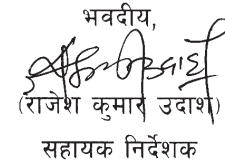 भवदीय,
(राजेश कुमार उदाश)
सहायक निर्देशक